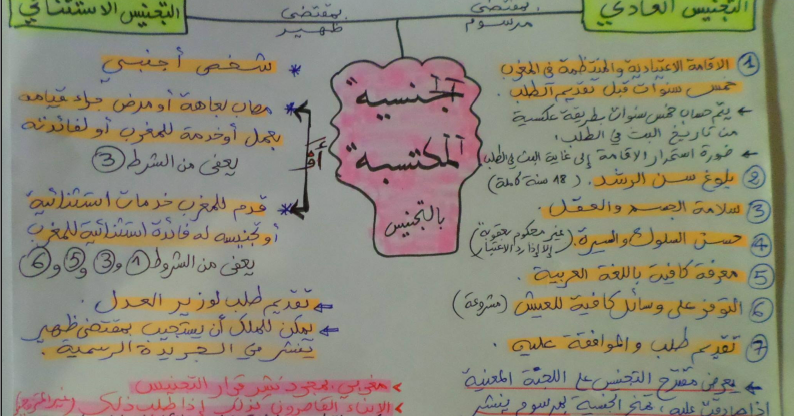 التجنيس العادي
بمقتضى
مرسوم
بمقتضى
ظهير
التجنيس الاستثنائي
الجنسية
المكتسبة
بالتجنيس
① الاقامة الاعتيادية والمنتظمة في المغرب
خمس سنوات قبل تقديم الطلب.
← يتم حساب خمس سنوات بطريقة عكسية
من تاريخ البت في الطلب.
← ضرورة استمرار الاقامة إلى غاية البث في الطلب
② بلوغ سن الرشد. (18 سنة كاملة)
③ سلامة الجسم والعقل.
④ حسن السلوك والسيرة. (غير محكوم بعقوبة
إلا إذا رد الاعتبار)
⑤ معرفة كافية باللغة العربية
⑥ التوفر على وسائل كافية للعيش (مشروعة)
⑦ تقديم طلب والموافقة عليه.
← يعرض مقترح التجنيس على اللجنة المعنية
إذا صادقت عليه، تمنح الجنسية بمرسوم ينشر
* شخص أجنبي
* مصاب بعاهة أو مرض جراء قيامه
بعمل أو خدمة للمغرب أو لفائدته
يعفى من الشرط ③
أو
* قدم للمغرب خدمات استثنائية
أو تجنيسه له فائدة استثنائية للمغرب
يعفى من الشروط ① و ③ و ⑤ و ⑥
⇐ تقديم طلب لوزير العدل.
⇐ يمكن للملك أن يستجيب بمقتضى ظهير
ينشر في الجريدة الرسمية.
> مغربي بمجرد نشر قرار التجنيس
> الابناء القاصرون كذلك إذا طلب ذلك